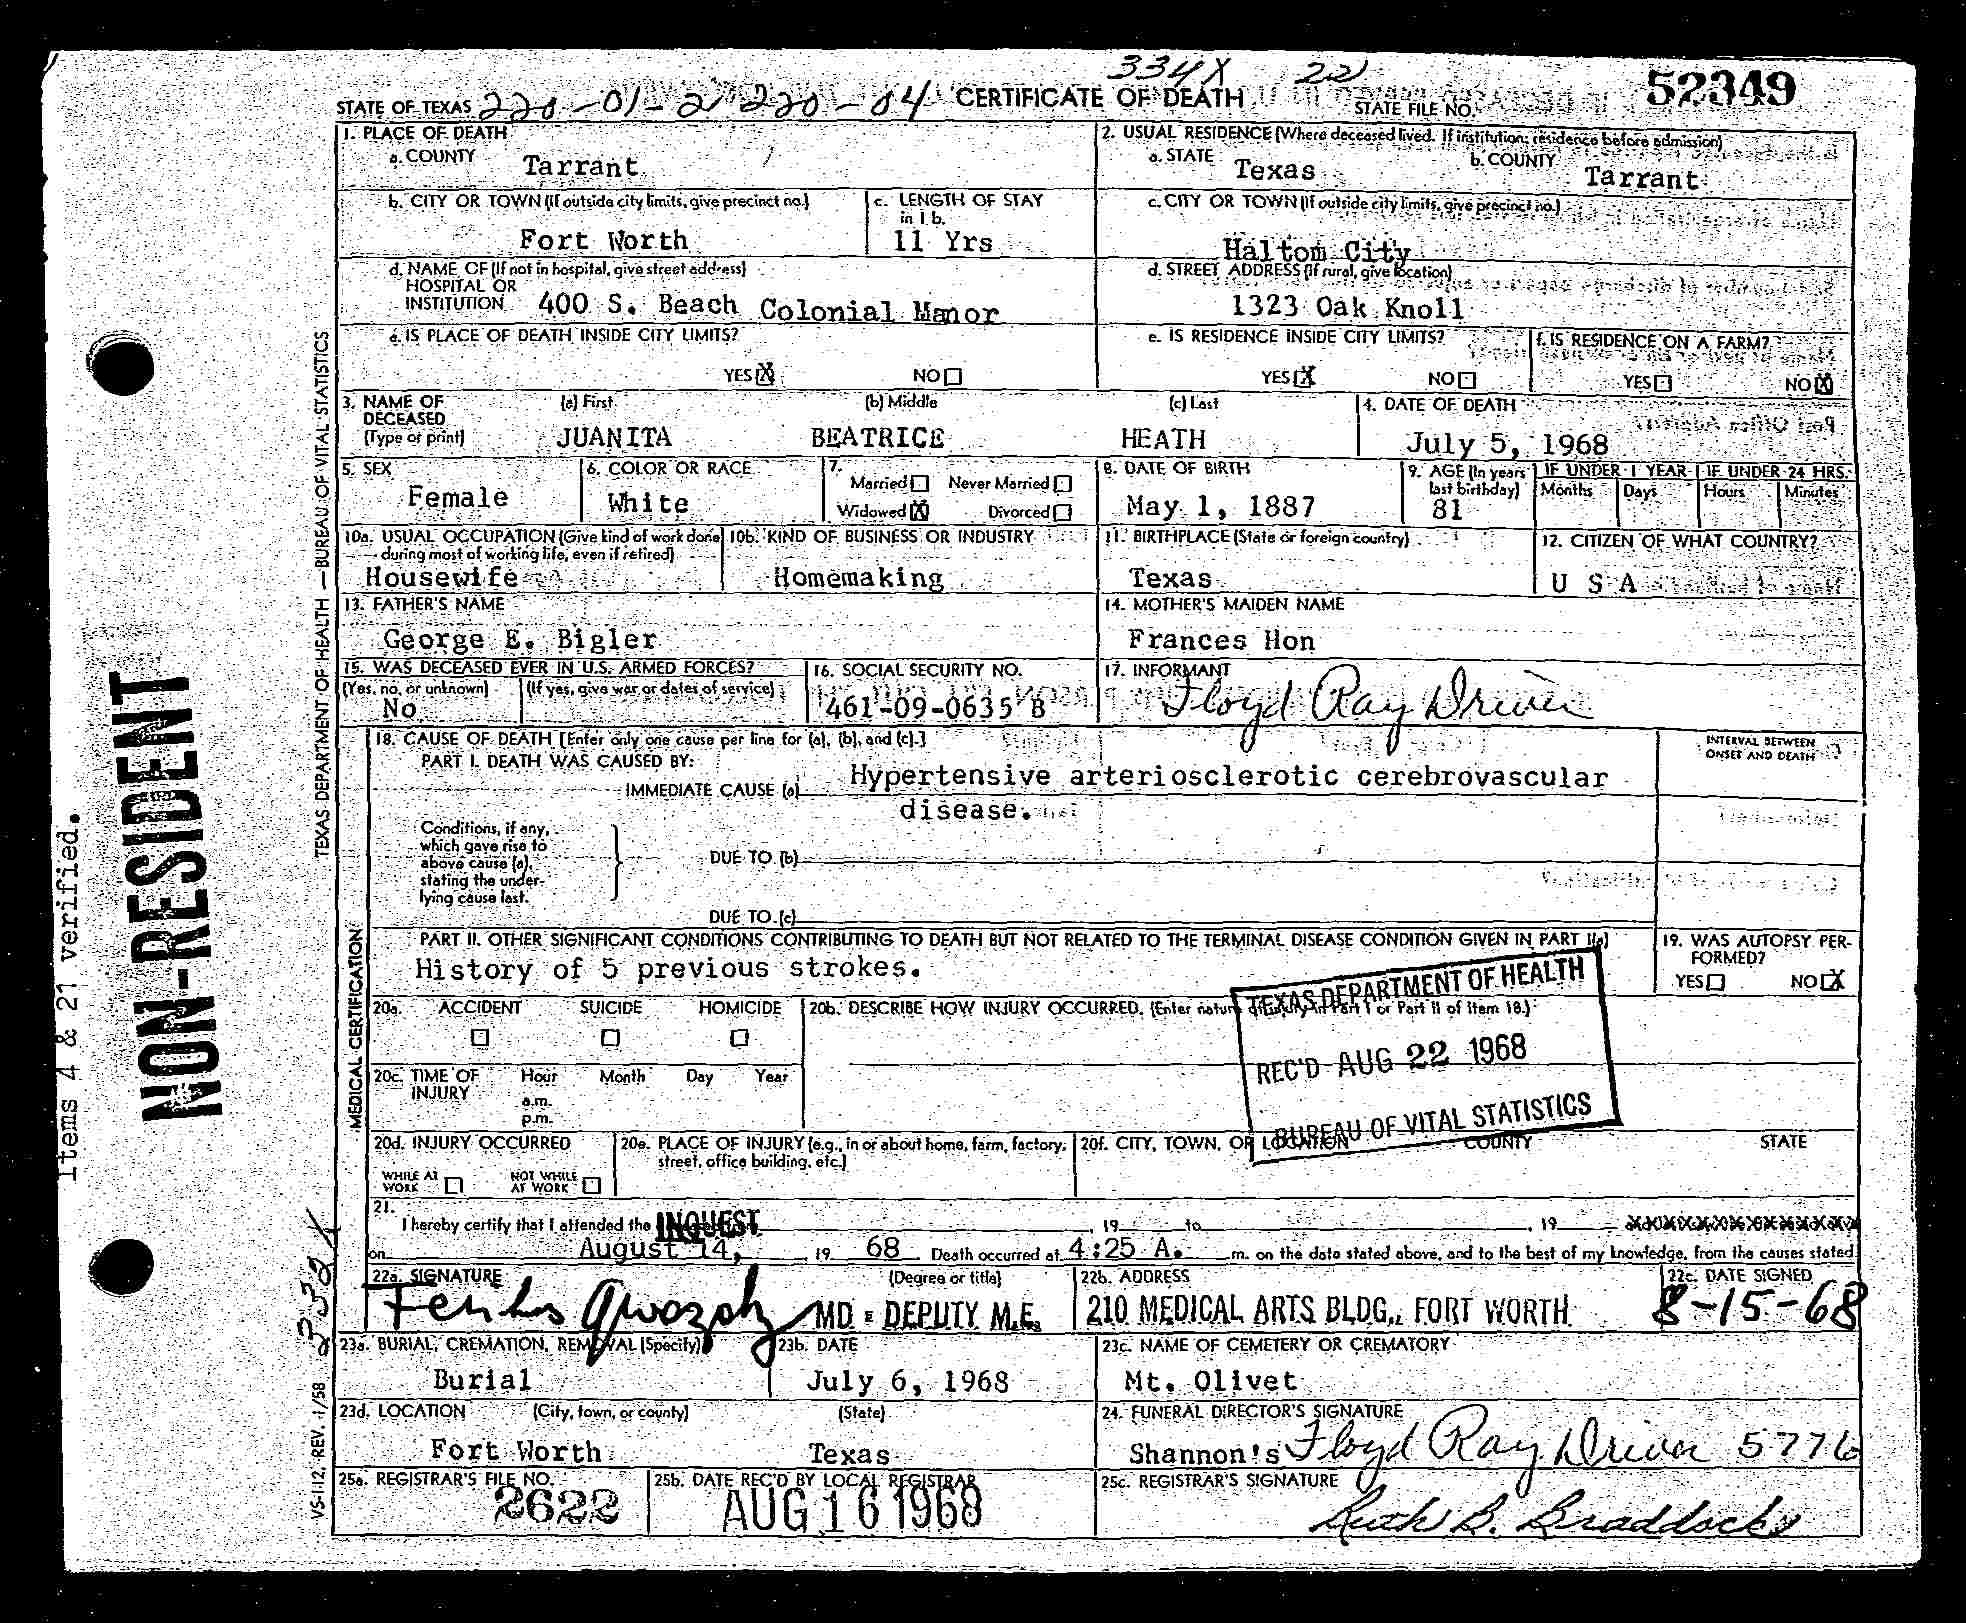 334X 22
STATE OF TEXAS 220-01-2 220-04 CERTIFICATE OF DEATH STATE FILE NO. 52349
1. PLACE OF DEATH
a. COUNTY Tarrant
2. USUAL RESIDENCE (Where deceased lived. If institution: residence before admission)
a. STATE Texas b. COUNTY Tarrant
b. CITY OR TOWN (If outside city limits, give precinct no.) Fort Worth
c. LENGTH OF STAY in 1 b. 11 Yrs
c. CITY OR TOWN (If outside city limits, give precinct no.) Haltom City
d. NAME OF (If not in hospital, give street address)
HOSPITAL OR
INSTITUTION 400 S. Beach Colonial Manor
d. STREET ADDRESS (If rural, give location)
1323 Oak Knoll
e. IS PLACE OF DEATH INSIDE CITY LIMITS?
YES X NO
e. IS RESIDENCE INSIDE CITY LIMITS?
YES X NO
f. IS RESIDENCE ON A FARM?
YES NO X
3. NAME OF DECEASED (Type or print)
(a) First (b) Middle (c) Last
JUANITA BEATRICE HEATH
4. DATE OF DEATH
July 5, 1968
5. SEX
Female
6. COLOR OR RACE
White
7.
Married Never Married
Widowed X Divorced
8. DATE OF BIRTH
May 1, 1887
9. AGE (In years last birthday)
81
IF UNDER 1 YEAR
Months Days
IF UNDER 24 HRS.
Hours Minutes
10a. USUAL OCCUPATION (Give kind of work done during most of working life, even if retired)
Housewife
10b. KIND OF BUSINESS OR INDUSTRY
Homemaking
11. BIRTHPLACE (State or foreign country)
Texas
12. CITIZEN OF WHAT COUNTRY?
U S A
13. FATHER'S NAME
George E. Bigler
14. MOTHER'S MAIDEN NAME
Frances Hon
15. WAS DECEASED EVER IN U.S. ARMED FORCES?
(Yes, no, or unknown) (If yes, give war or dates of service)
No
16. SOCIAL SECURITY NO.
461-09-0635 B
17. INFORMANT
Floyd Ray Driver
18. CAUSE OF DEATH [Enter only one cause per line for (a), (b), and (c).]
PART I. DEATH WAS CAUSED BY:
IMMEDIATE CAUSE (a) Hypertensive arteriosclerotic cerebrovascular
disease.
INTERVAL BETWEEN
ONSET AND DEATH
Conditions, if any,
which gave rise to
above cause (a),
stating the under-
lying cause last.
DUE TO (b)
DUE TO (c)
PART II. OTHER SIGNIFICANT CONDITIONS CONTRIBUTING TO DEATH BUT NOT RELATED TO THE TERMINAL DISEASE CONDITION GIVEN IN PART I(a)
History of 5 previous strokes.
19. WAS AUTOPSY PER-
FORMED?
YES NO X
20a. ACCIDENT SUICIDE HOMICIDE
20b. DESCRIBE HOW INJURY OCCURRED. (Enter nature of injury in Part I or Part II of Item 18.)
TEXAS DEPARTMENT OF HEALTH
REC'D AUG 22 1968
BUREAU OF VITAL STATISTICS
20c. TIME OF INJURY
Hour Month Day Year
a.m.
p.m.
20d. INJURY OCCURRED
WHILE AT WORK NOT WHILE AT WORK
20e. PLACE OF INJURY (e.g., in or about home, farm, factory,
street, office building, etc.)
20f. CITY, TOWN, OR LOCATION COUNTY STATE
21.
I hereby certify that I attended the INQUEST , 19 to , 19
on August 14, 19 68 Death occurred at 4:25 A. m. on the date stated above, and to the best of my knowledge, from the causes stated
22a. SIGNATURE (Degree or title)
MD - DEPUTY M.E.
22b. ADDRESS
210 MEDICAL ARTS BLDG., FORT WORTH
22c. DATE SIGNED
8-15-68
23a. BURIAL, CREMATION, REMOVAL (Specify)
Burial
23b. DATE
July 6, 1968
23c. NAME OF CEMETERY OR CREMATORY
Mt. Olivet
23d. LOCATION (City, town, or county) (State)
Fort Worth Texas
24. FUNERAL DIRECTOR'S SIGNATURE
Shannon's Floyd Ray Driver 5776
25a. REGISTRAR'S FILE NO.
2622
25b. DATE REC'D BY LOCAL REGISTRAR
AUG 16 1968
25c. REGISTRAR'S SIGNATURE
Ruth B. Braddock
TEXAS DEPARTMENT OF HEALTH — BUREAU OF VITAL STATISTICS
MEDICAL CERTIFICATION
VS-112, REV. 1/58
NON-RESIDENT
Items 4 & 21 verified.